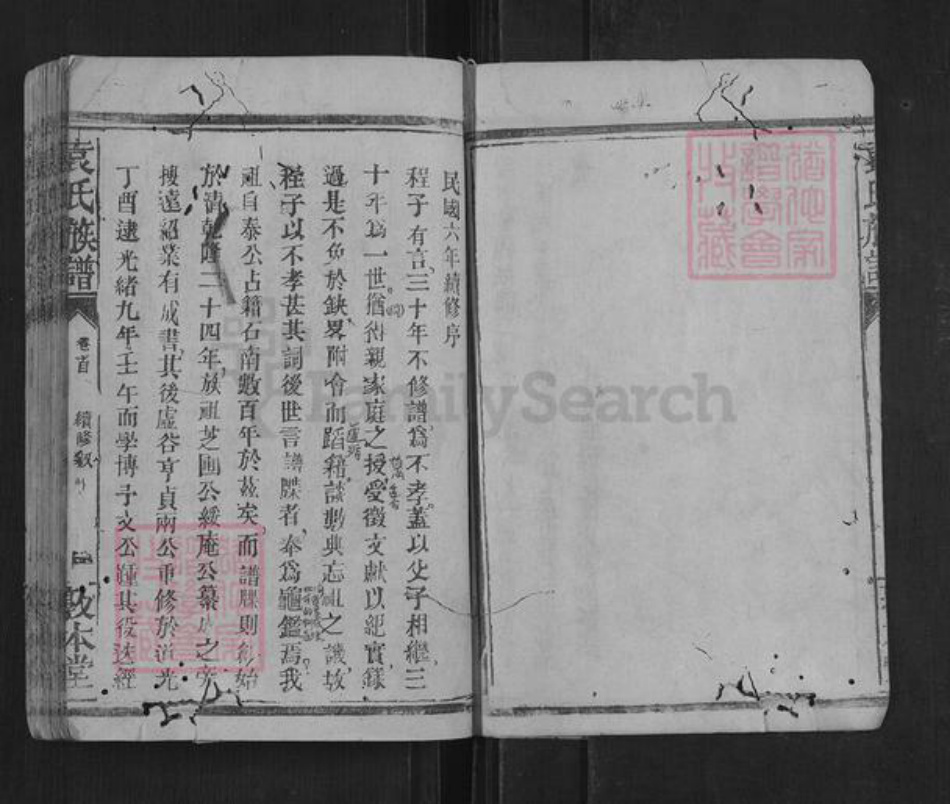 民國六年續修序
程子有言三十年不修譜為不孝蓋以父子相繼三
十年為一世猶得親家庭之授受徵文獻以紀實錄
過是不免於缺畧附會而蹈籍談數典忘祖之譏故
程子以不孝甚其詞後世言譜牒者奉為龜鑑焉我
祖自泰公占籍石南數百年於茲矣而譜牒則創始
於清乾隆二十四年族祖芝圃公緩庵公纂成之帝
搜遠紹業有成書其後虛谷亨貞兩公重修於道光
丁酉逮光緒九年壬午而學博子文公踵其役迭經
袁氏族譜
卷首
續修敘
敦本堂
袁氏族譜
FamilySearch
猶他家譜學會廿藏